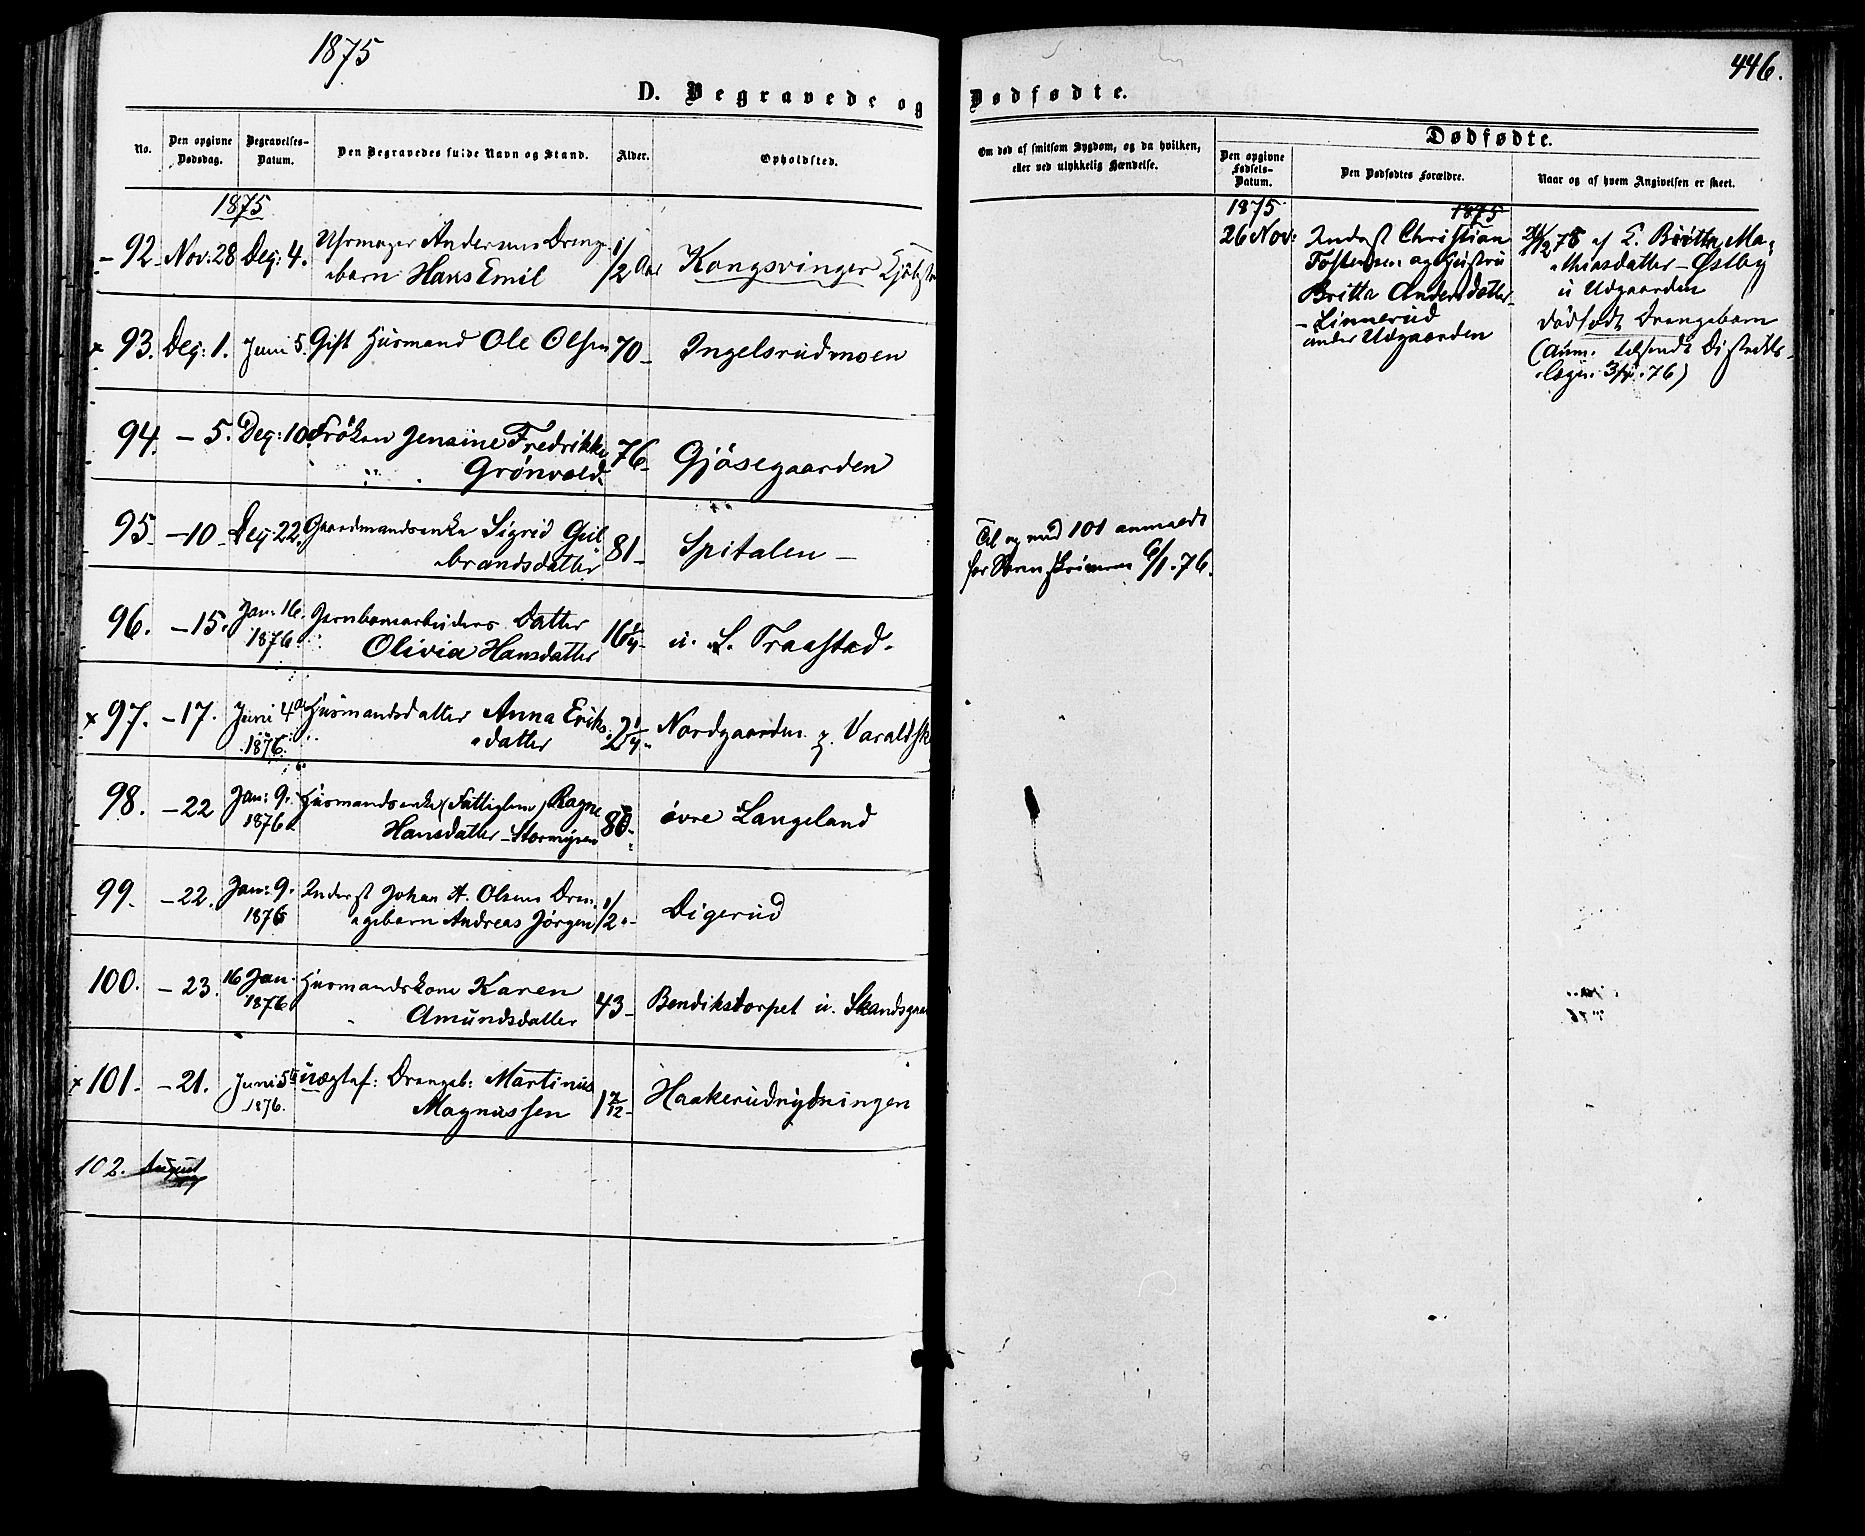 1875
D. Begravede og
No.
Den opgivne Dødsdag.
Begravelses-Datum.
Den Begravedes fulde Navn og Stand.
Alder.
Opholdsted.
1875
92. Nov: 28 Dec: 4. Uhrmager Andersens Drenge- 1/2 Aar Kongsvinger
barn Hans Emil
x 93. Dec: 1. Juni 5. Gift Husmand Ole Olsen 70 – Ingelsrudmoen
94. – 5. Dec: 10. Frøken Jensine Fredrikke 76 – Gjøsegaarden
Grønvold.
95. – 10. Dec: 22. Gaardmandsenke Sigrid Gul 81 – Spitalen –
brandsdatter
96. – 15. Jan: 16. Jernbanearbeiders Datter 16 1/4 – u. L. Traastad.
1876. Olivia Hansdatter
x 97. – 17. Juni 4de Husmandsdatter Anna Eriks 2 1/4 – Nordgaarden p. Varaldsk
1876. datter
98. – 22 Jan: 9. Husmandsenke (Fattiglem) Ragne 80 – øvre Langeland
1876. Hansdatter – Stormyren
99. – 22. Jan: 9. Inderst Johan A. Olsens Dren 1/2 – Digerud
1876 gebarn Andreas Jørgen
100. – 23. 16 Jan. Husmandskone Karen 43 – Bendikstorpet u. Skandsgaar
1876 Amundsdatter
x 101. – 21. Juni 5te uægtef: Drengeb: Martinus 1 7/12 – Haakerudrydningen
1876. Magnussen
102. August
446.
Dødfødte.
Om død af smitsom Sygdom, og da hvilken,
eller ved ulykkelig Hændelse.
Dødfødte.
Den opgivne Fødsels-Datum.
Den Dødfødtes Forældre.
Naar og af hvem Angivelsen er skeet.
1875
1875
26 Nov: Inderst Christian
Tostensen og Hustru
Britta Andersdatter
– Linnerud
under Udgaarden
af E. Britta Ma-
thiasdatter – Østby
u Udgaarden
dødfødt Drengebarn
(Anm. tilsendt Distrikts-
læge. 3/1. 76)
Til og med 101 anmeldt
for Sorenskriveren 6/1. 76.